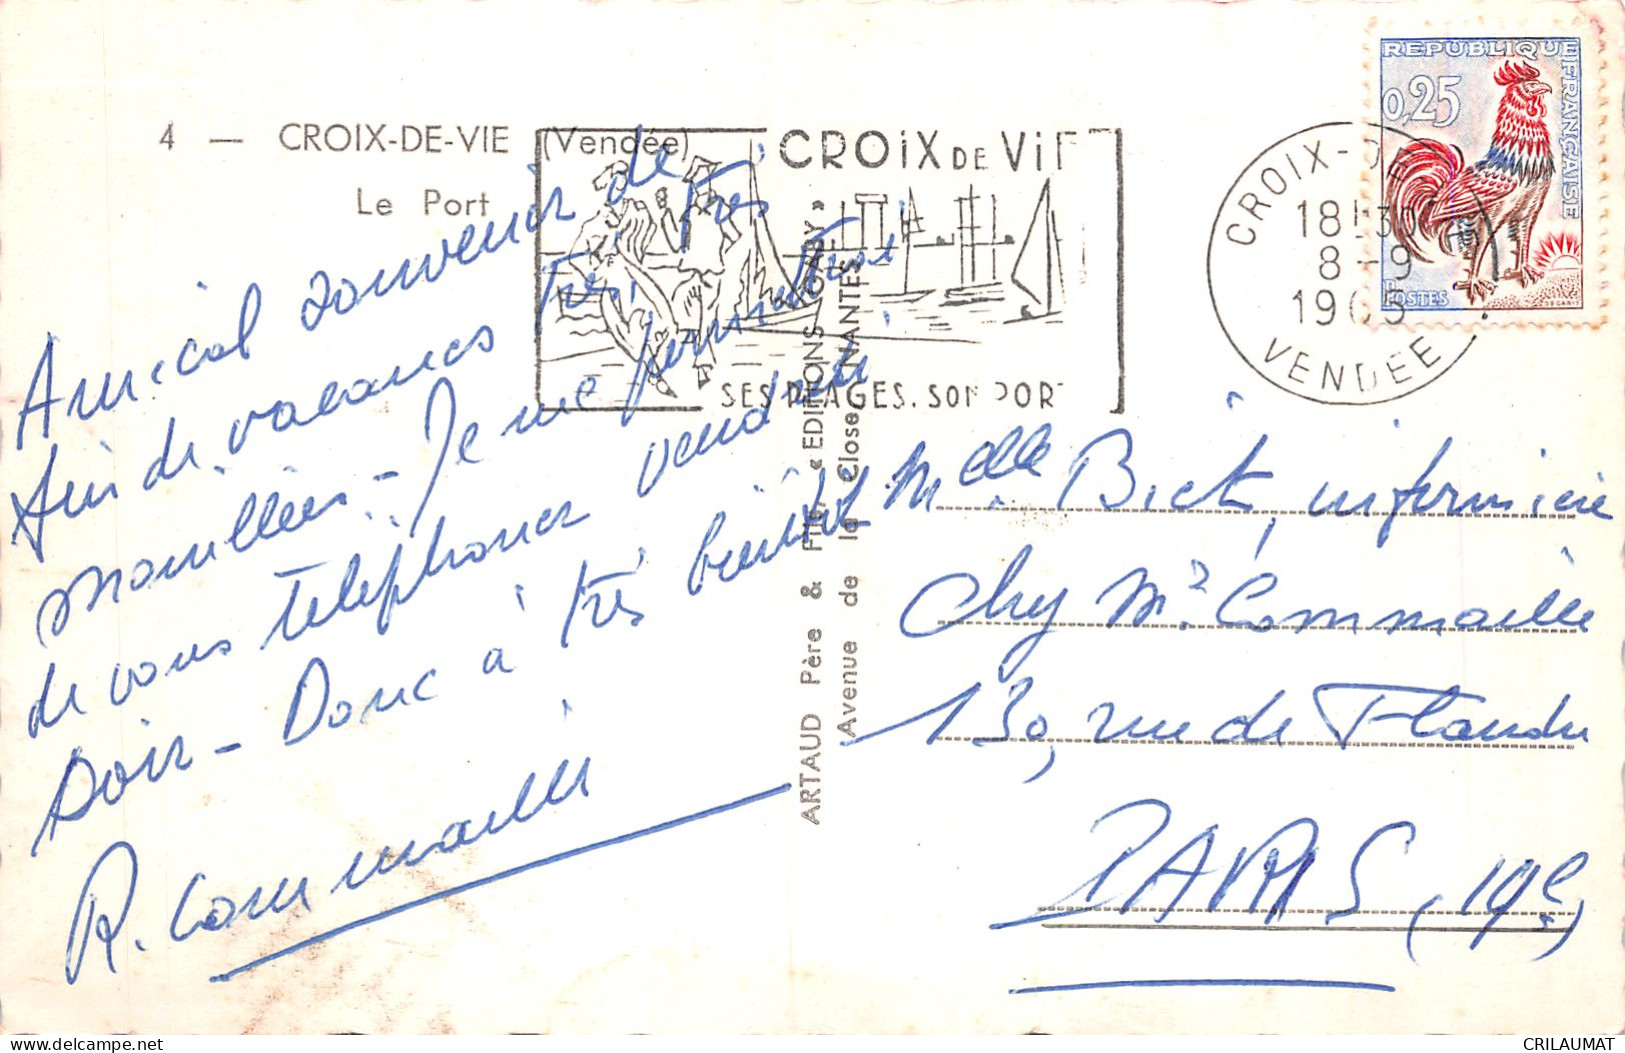 4 — CROIX-DE-VIE (Vendée)
Le Port
CROiX DE Vi
SES PLAGES. SON PORT
CROIX-DE
18 30
8-9
1965
VENDÉE
REPUBLIQUE FRANÇAISE
0,25
POSTES
Amical souvenir de
fin de vacances très, très
mouillées - Je me permettrai
de vous téléphoner vendredi
soir - Donc à très bientôt
R. Commaille
ARTAUD Père & Fils, « EDITIONS GABY »
Avenue de la Close NANTES
Melle Bick, infirmière
chez Mr Commaille
130, rue de Flandre
PARIS (19e)
CRILAUMAT